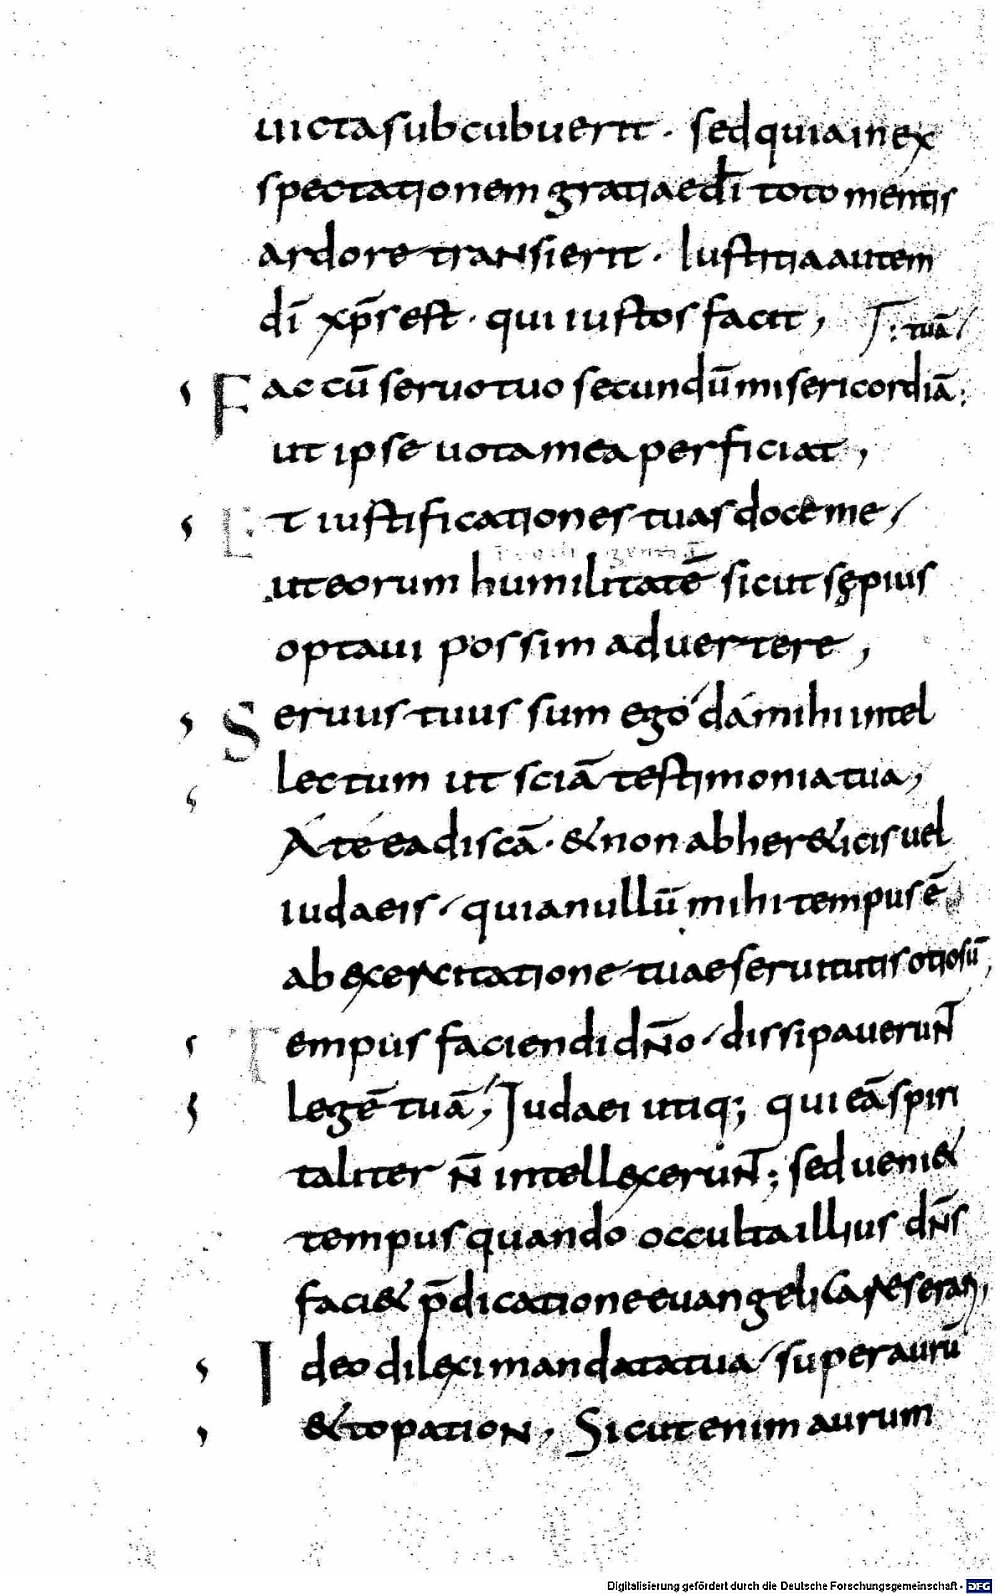 uicta subcubuerit · sed quia in ex
spectationem gratiae dī toto mentis
ardore transierit · Iustitia autem
dī xp̄s est · qui iustos facit,
: tuā /
Fac cū seruo tuo secundū misericordiā:
ut ipse uota mea perficiat,
Et iustificationes tuas doce me /
ut eorum humilitatē sicut sępius
optaui possim aduertere,
Seruus tuus sum ego da mihi intel
lectum ut sciā testimonia tua,
A te ea discā · & non ab her&icis uel
iudaeis · quia nullū mihi tempus ē
ab exercitatione tuae seruitutis otiosū,
Tempus faciendi dn̄o / dissipauerunt
legē tuā, Iudaei utiq; qui eā spiri
taliter n̄ intellexerunt; sed ueni&
tempus quando occulta illius dn̄s
faci& p̄dicatione euangelica
Ideo dilexi mandata tua / super aurū
& topation, Sicut enim aurum
Digitalisierung gefördert durch die Deutsche Forschungsgemeinschaft - DFG